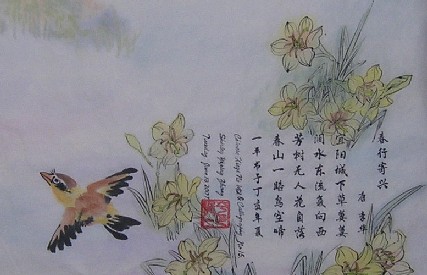 春行寄兴
唐 李华
宜阳城下草萋萋
涧水东流复向西
芳树无人花自落
春山一路鸟空啼
一平书于丁亥年夏
Chinese
Calligraphy
Tuesday, June 19, 2007